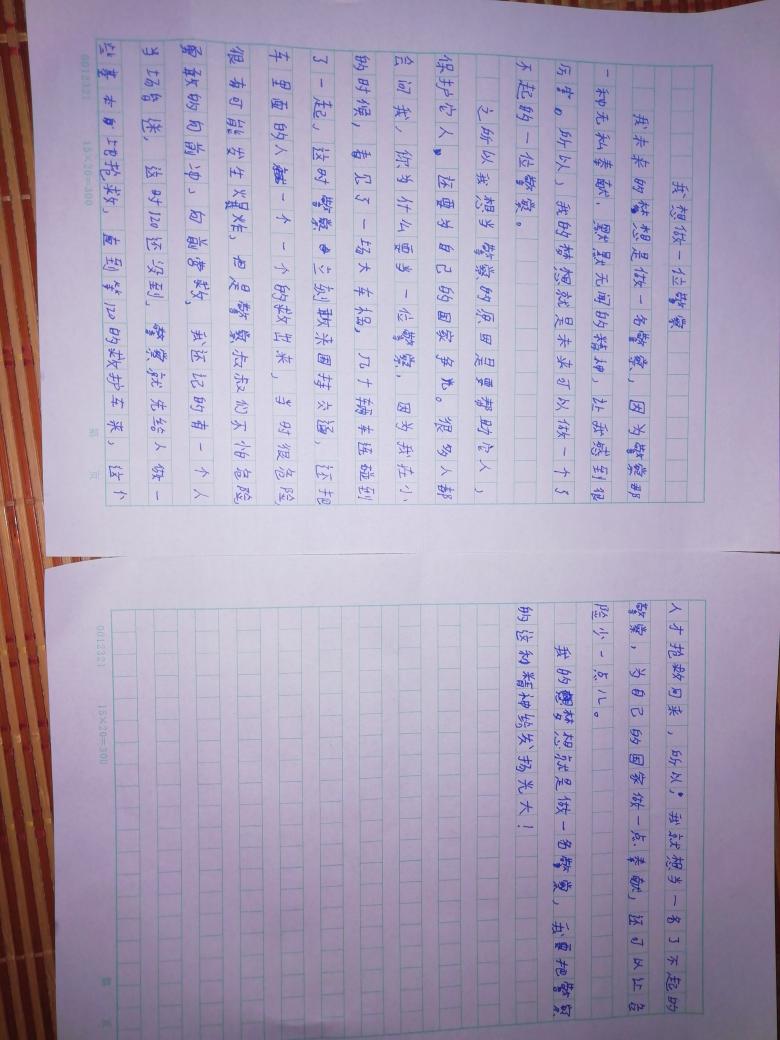 我想做一位警察
我未来的梦想是做一名警察，因为警察那
一种无私奉献，默默无闻的精神，让我感到很
厉害。所以，我的梦想就是未来可以做一个了
不起的一位警察。
之所以我想当警察的原因是要帮助它人，
保护它人，还要为自己的国家争光。很多人都
会问我，你为什么要当一位警察，因为我在小
的时候，看见了一场大车祸，几十辆车连碰到
了一起，这时警察立刻敢来围持交通，还把
车里面的人一个一个的救出来，当时很危险
很有可能发生爆炸，但是警察叔叔们不怕危险
勇敢的向前冲，向前营救，我还记的有一个人
当场昏迷，这时120还没到，警察就先给人做一
些基本的抢救，直到等120的救护车来，这个
0012321 15×20=300 第 页
人才抢救回来，所以，我就想当一名了不起的
警察，为自己的国家做一点奉献，还可以让危
险少一点儿。
我的梦想就是做一名警察，我要把警察
的这种精神给发扬光大！
0012321 15×20=300 第 页